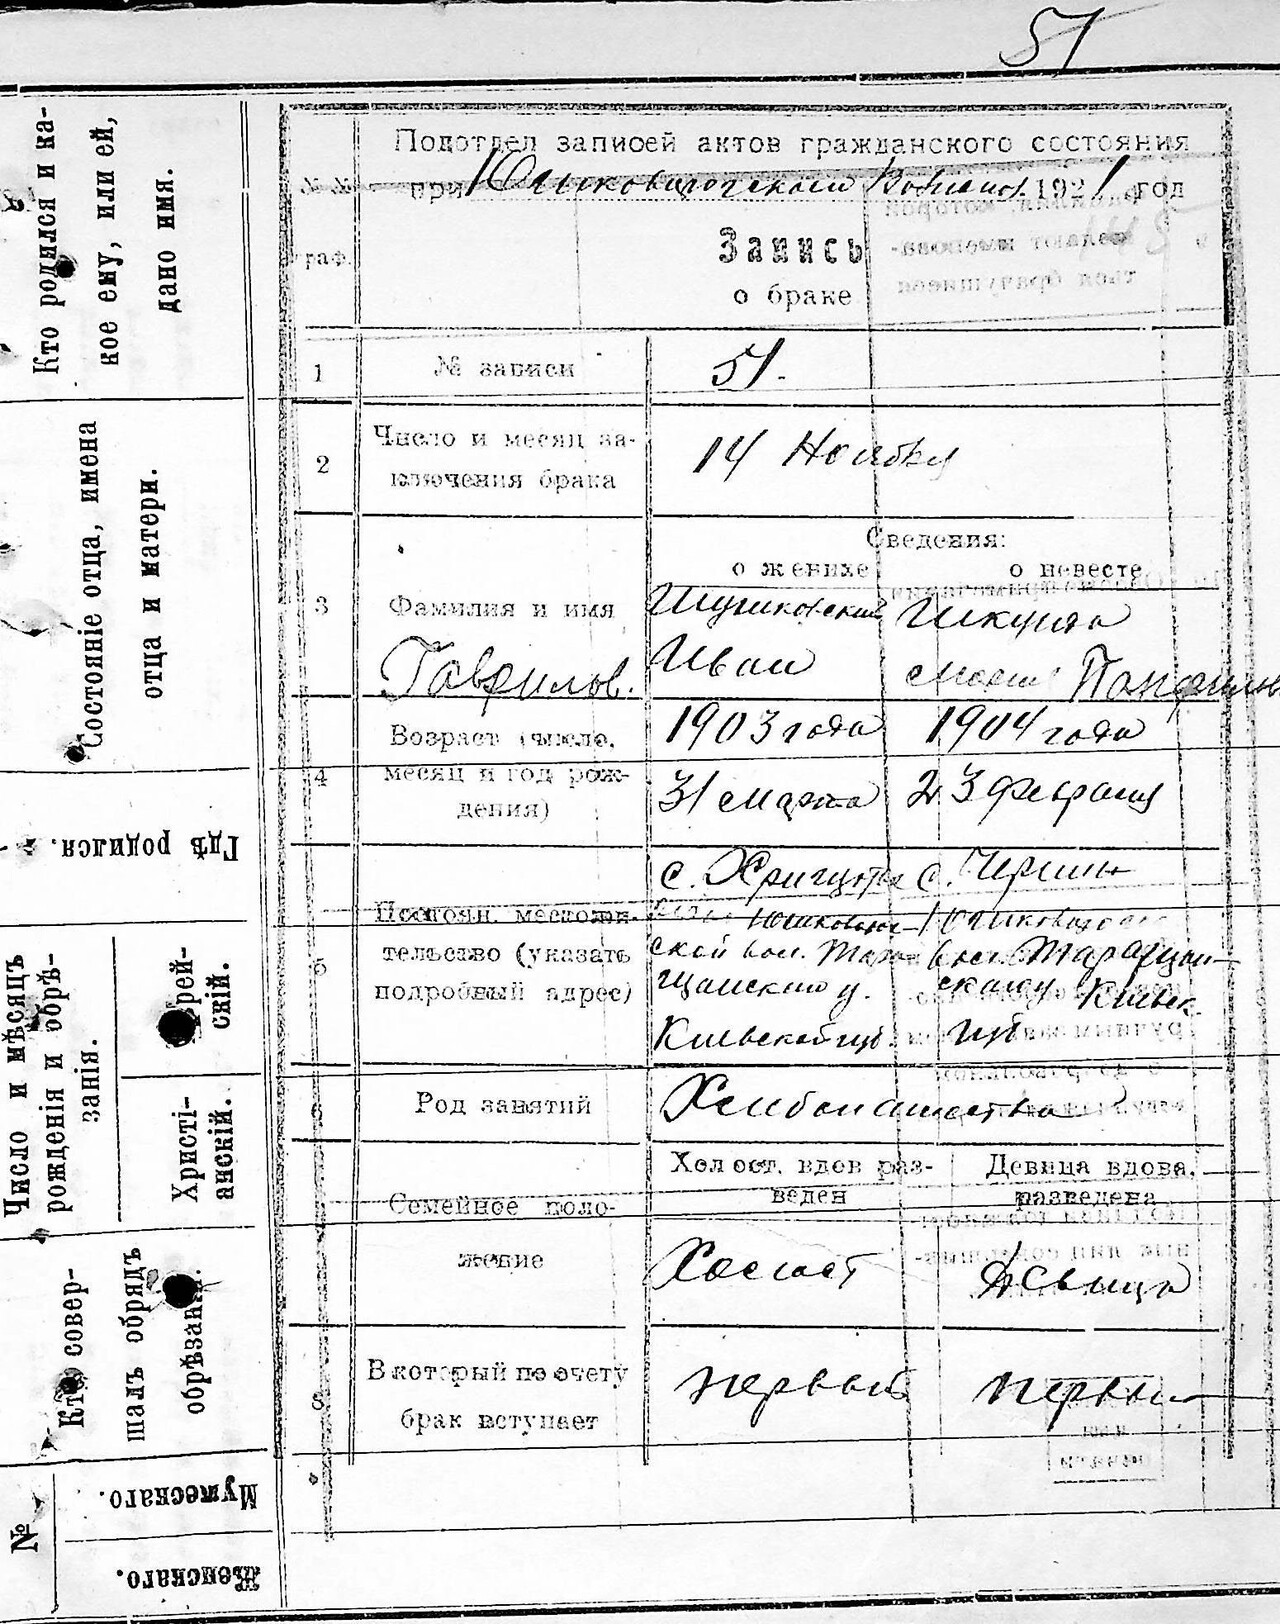 51
Кто родился и ка-
кое ему, или ей,
дано имя.
Состоянiе отца, имена
отца и матери.
Гдѣ родился.
Число и мѣсяцъ
рожденiя и обрѣ-
занiя.
Еврей-
скiй.
Христi-
анскiй.
Кто совер-
шалъ обрядъ
обрѣзанiя.
№
Мужескаго.
Женскаго.
Подотдел записей актов гражданского состояния
при Юшковорогском Волисп. 1921 год
№№
граф
Запись
о браке
1
№ записи
51.
2
Число и месяц за-
ключения брака
14 Ноября
Сведения:
о женихе
о невесте
3
Фамилия и имя
Гаврилов.
Иван
Шкурта
Мария Панфилов
4
Возраст (число,
месяц и год рож-
дения)
1903 года
31 марта
1904 года
23 февраля
5
Постоян. местожи-
тельство (указать
подробный адрес)
с.
Юшковорог-
ской вол. Тара-
щанского у.
Киевской губ.
с. Черепин
Юшковорогс
вол. Таращан-
ского у Киевск.
губ
6
Род занятий
Хлебопашество
Семейное поло-
жение
Холост. вдов раз-
веден
Девица вдова,
разведена
Холост
Девица
8
В который по счету
брак вступает
первый
первый